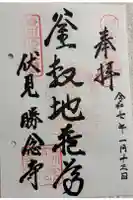 奉拝
令和七年一月十三日
釜敷地蔵尊
伏見 勝念寺